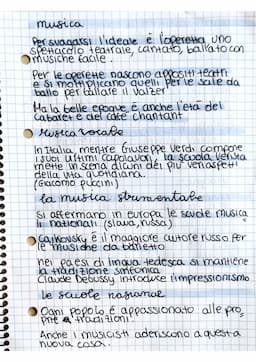 musica
Per svagarsi l'ideale è l'operetta uno
spettacolo teatrale, cantato, ballato con
musiche facile.
Per le operette nascono appositi teatri
e si moltiplicano quelli per le sale da
ballo per ballare il valzer
Ma la belle epoque è anche l'età dei
cabaret e dei cafè chantant
musica vocale
In Italia, mentre Giuseppe Verdi compone
i suoi ultimi capolavori, la scuola verista
mette in scena alcuni dei più veri aspetti
della vita quotidiana.
(Giacomo Puccini)
la musica strumentale
Si affermano in europa le scuole musica
li nazionali (slava, russa)
Caikovskj è il maggiore autore russo per
le musiche da balletto
Nei paesi di lingua tedesca si mantiene
la tradizione sinfonica
Claude Debussy introduce l'impressionismo
le scuole nazionale
Ogni popolo è appassionato alle pro
prie tradizioni
Anche i musicisti aderiscono a questa
nuova cosa.